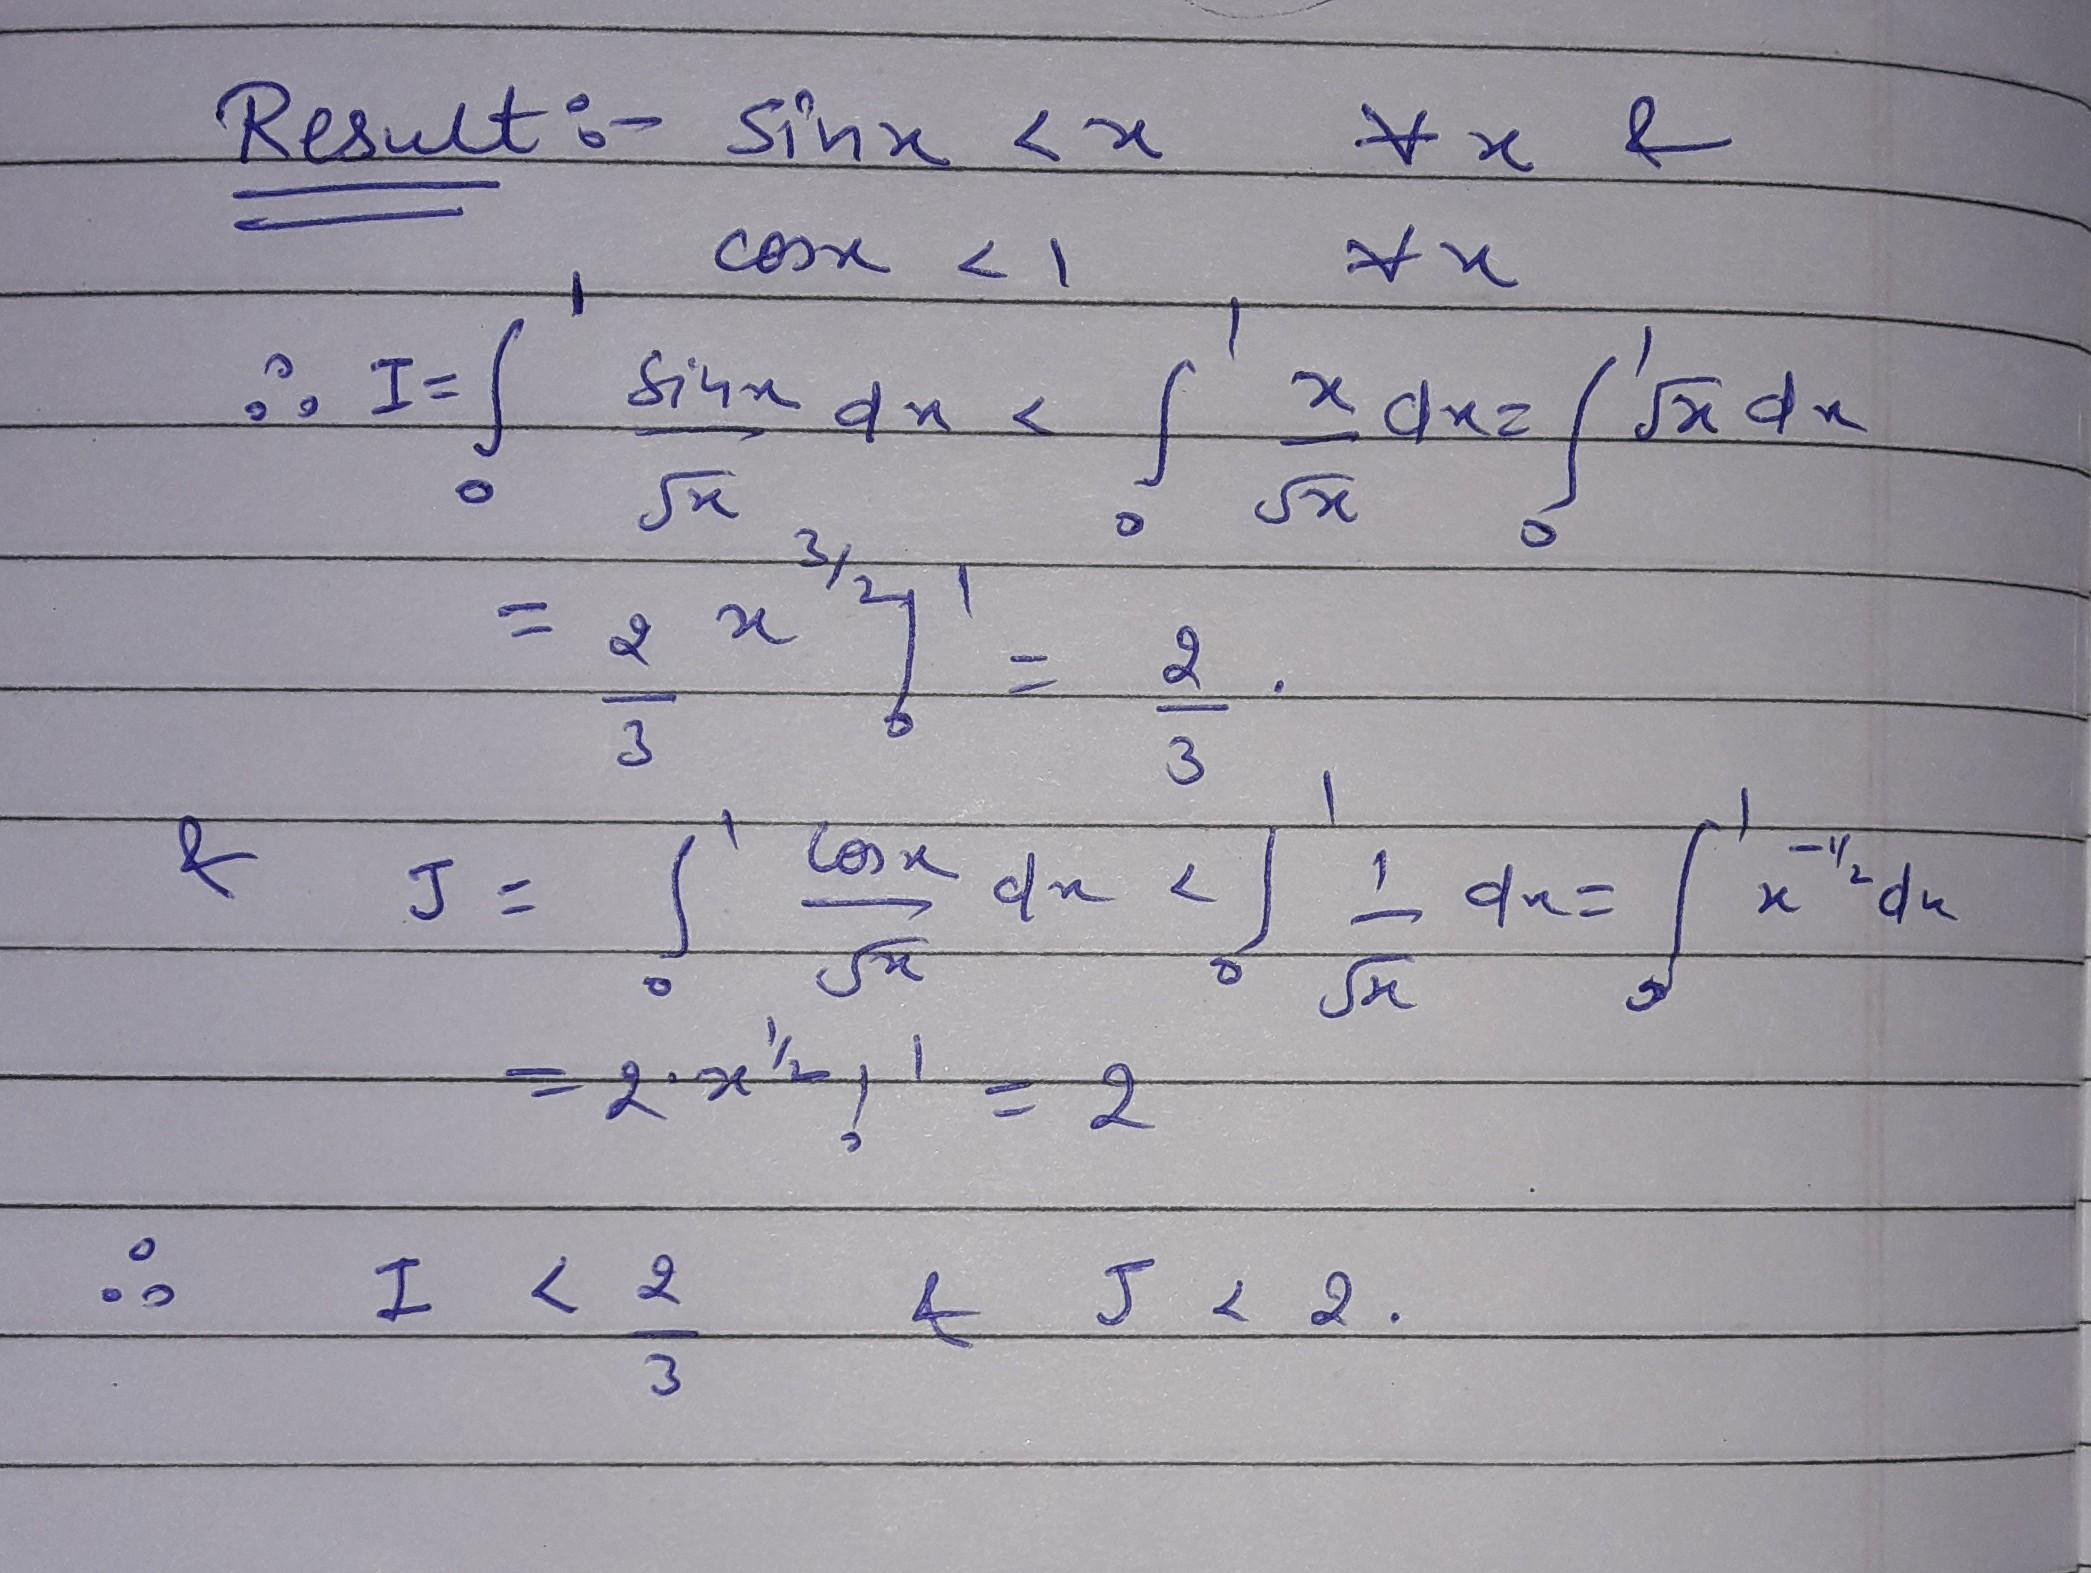 Result :- Sinx < x ∀ x &
cosx < 1 ∀ x
∴ I = ∫₀¹ sinx/√x dx < ∫₀¹ x/√x dx = ∫₀¹ √x dx
= 2/3 x^(3/2)]₀¹ = 2/3 .
& J = ∫₀¹ cosx/√x dx < ∫₀¹ 1/√x dx = ∫₀¹ x^(-1/2) dx
= 2·x^(1/2) |₀¹ = 2
∴ I < 2/3 & J < 2.